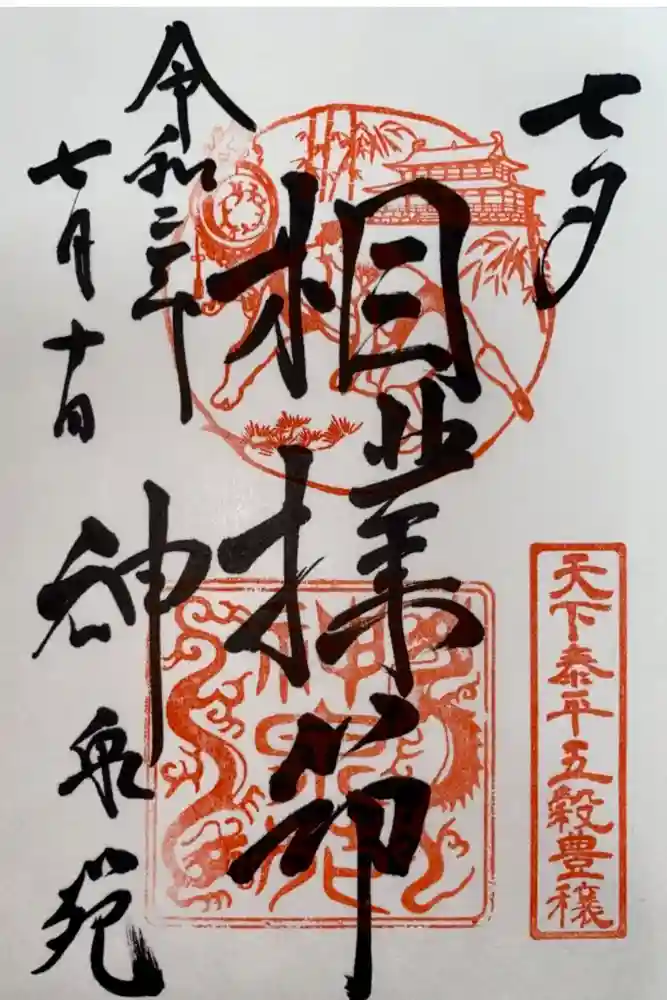 七夕
天下泰平五穀豊穣
相撲節
令和二年
七月十日
神泉苑
神泉苑